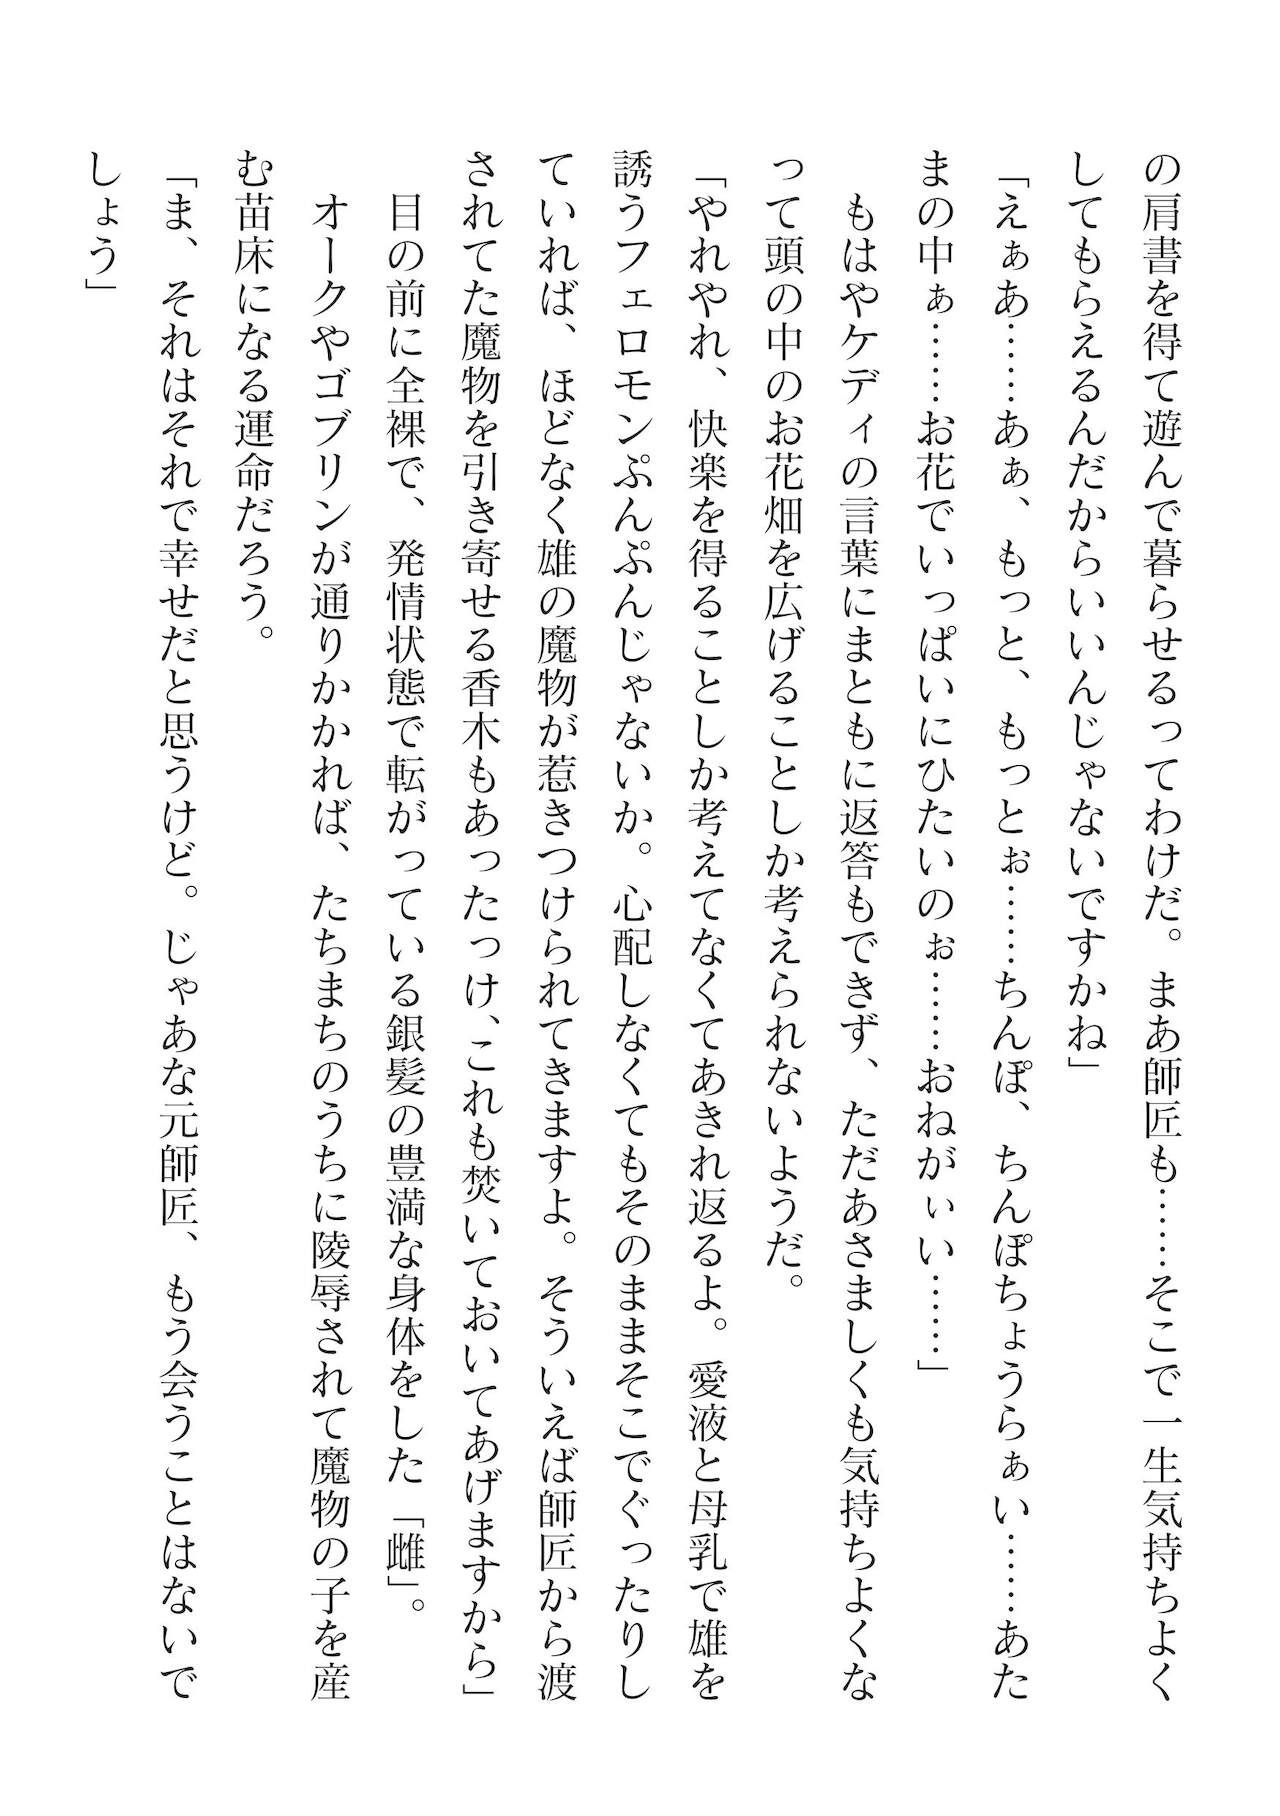 の肩書を得て遊んで暮らせるってわけだ。まあ師匠も……そこで一生気持ちよく
してもらえるんだからいいんじゃないですかね」
「えぁあ……あぁ、もっと、もっとぉ……ちんぽ、ちんぽちょうらぁい……あた
まの中ぁ……お花でいっぱいにひたいのぉ……おねがぃい……」
　もはやケディの言葉にまともに返答もできず、ただあさましくも気持ちよくな
って頭の中のお花畑を広げることしか考えられないようだ。
「やれやれ、快楽を得ることしか考えてなくてあきれ返るよ。愛液と母乳で雄を
誘うフェロモンぷんぷんじゃないか。心配しなくてもそのままそこでぐったりし
ていれば、ほどなく雄の魔物が惹きつけられてきますよ。そういえば師匠から渡
されてた魔物を引き寄せる香木もあったっけ、これも焚いておいてあげますから」
　目の前に全裸で、発情状態で転がっている銀髪の豊満な身体をした「雌」。
　オークやゴブリンが通りかかれば、たちまちのうちに陵辱されて魔物の子を産
む苗床になる運命だろう。
「ま、それはそれで幸せだと思うけど。じゃあな元師匠、もう会うことはないで
しょう」